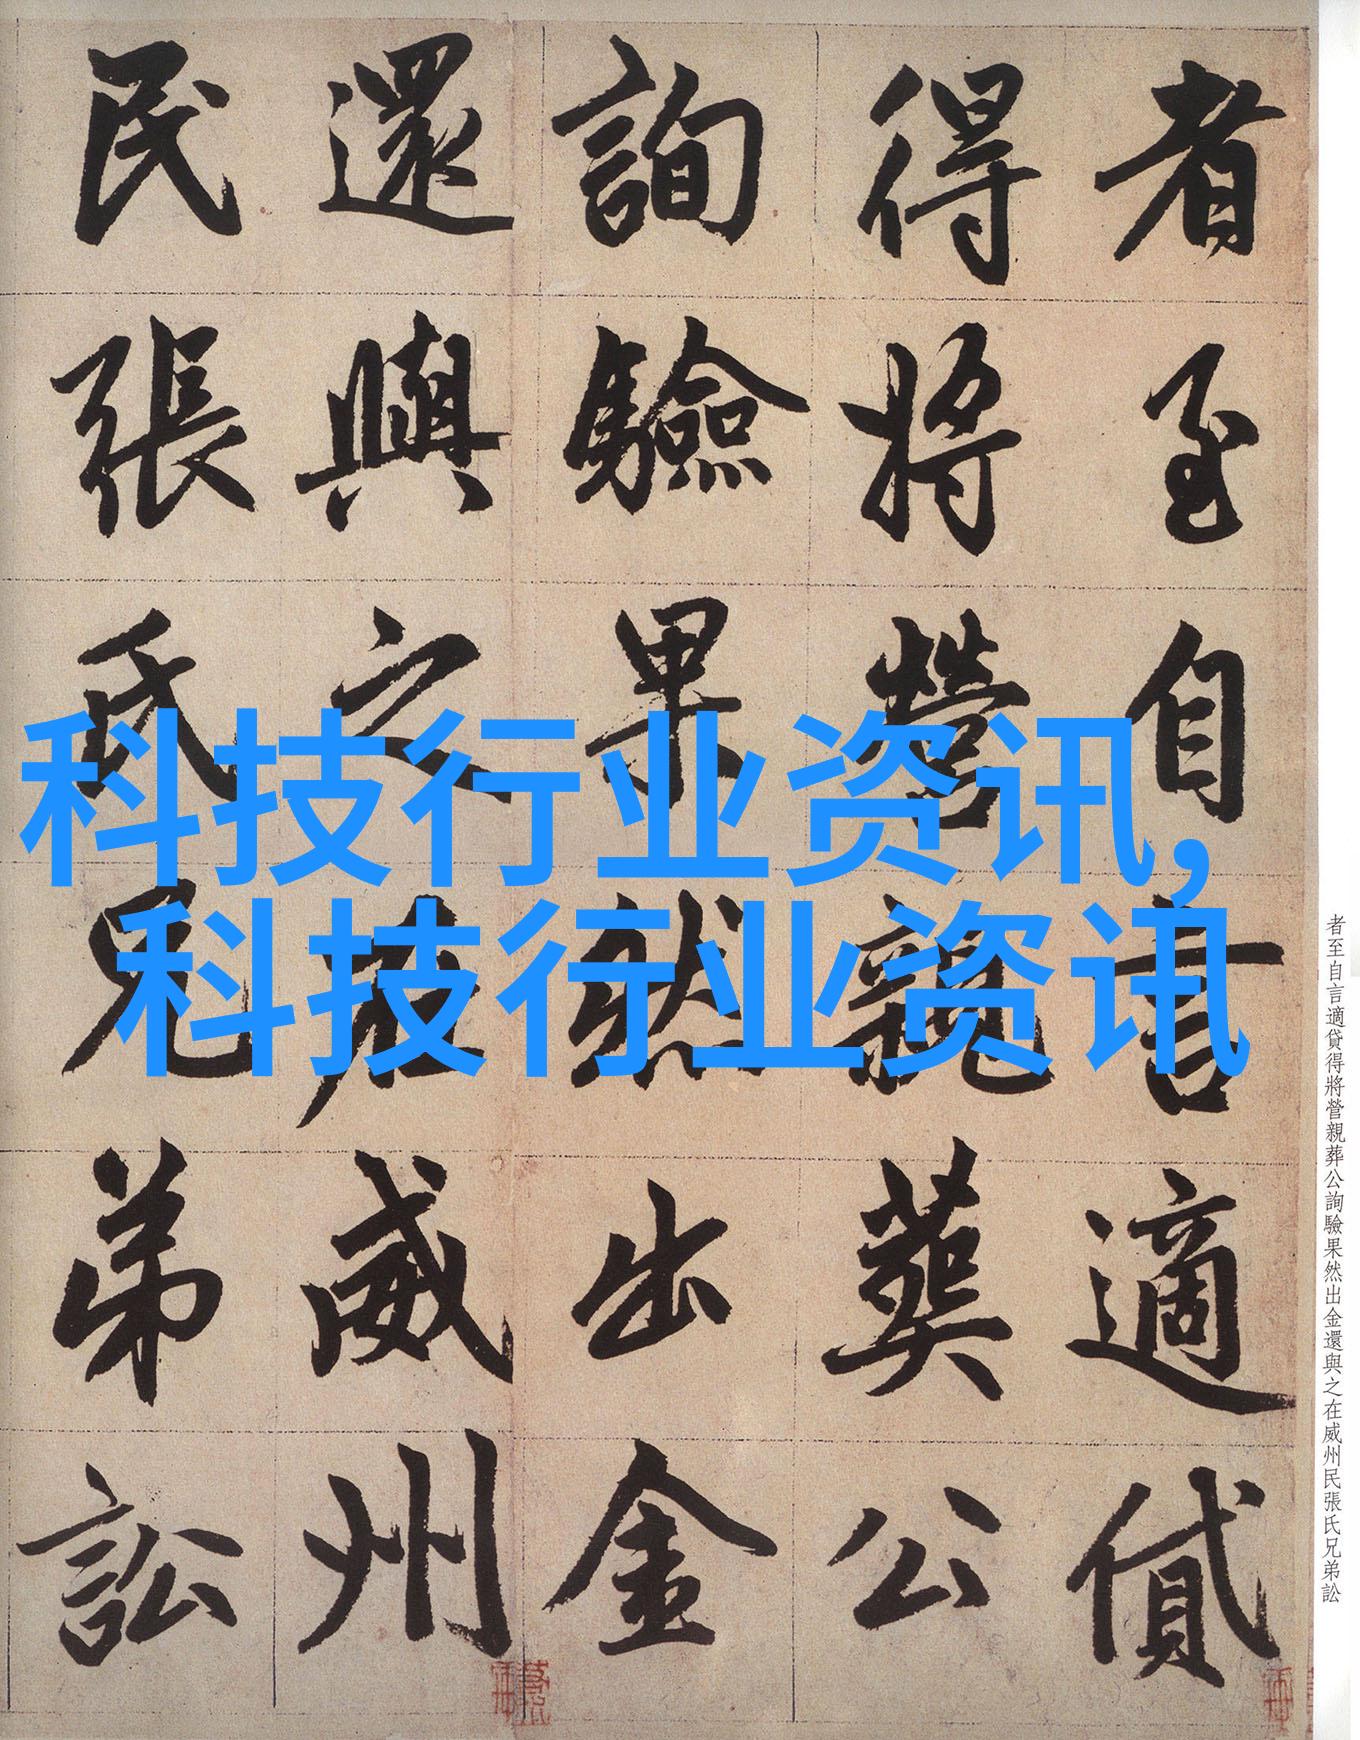 者至自言適貸
得將營親葬公
詢驗果然出金
還與之在威州
民張氏兄弟訟
科技行业资讯,
科技行业资讯
者至自言適貸得將營親葬公詢驗果然出金還與之在威州民張氏兄弟訟